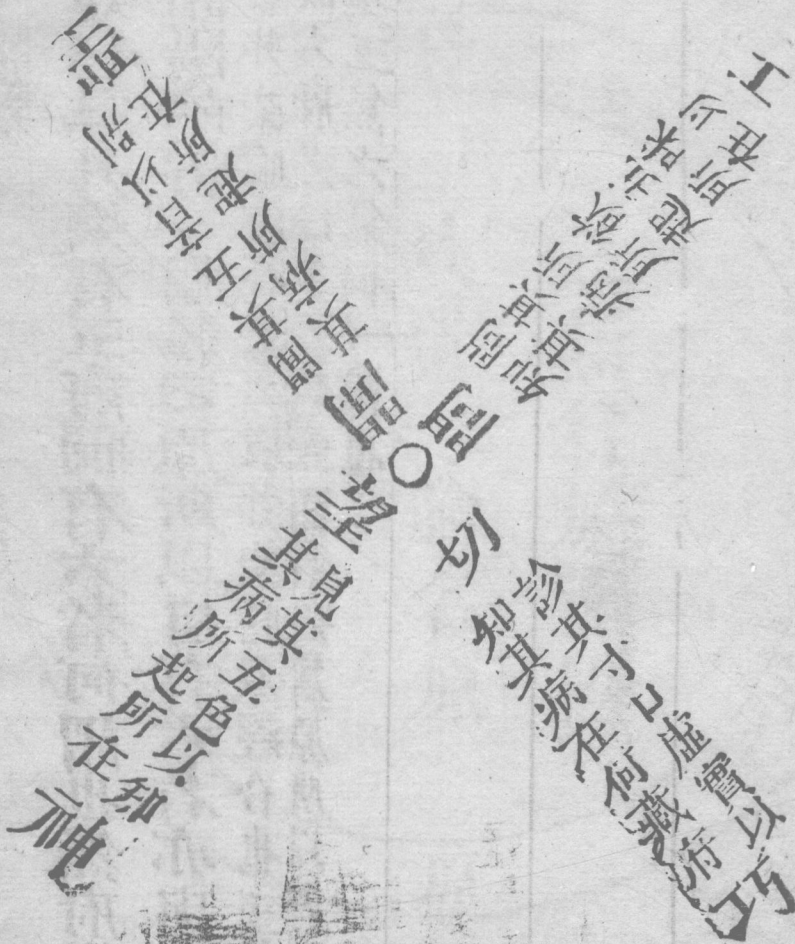 望
見其五色以知
其病所起所在
神
聞
聞其五音以別
其病所起所在
聖
問
問其所欲五味以
知其病所起所在
工
切
診其寸口虛實以
知其病在何藏府
巧